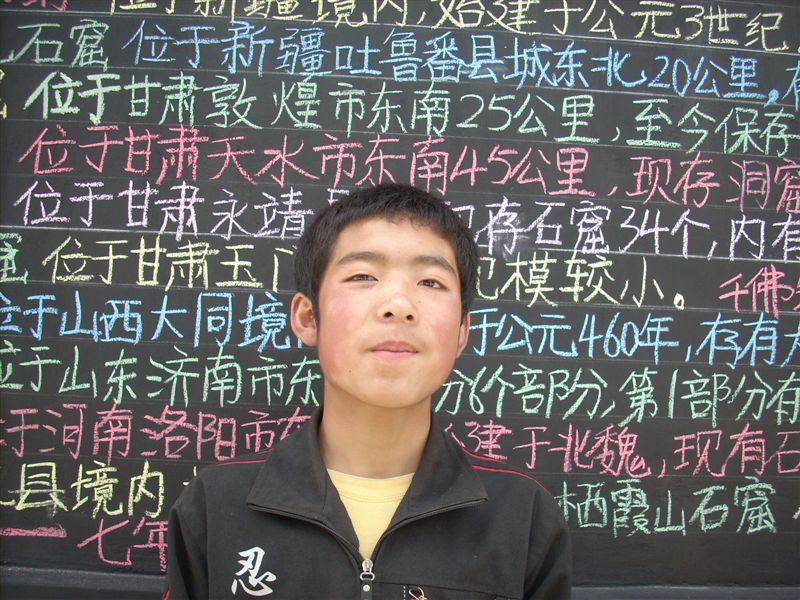 位于新疆境内,始建于公元3世纪,
石窟 位于新疆吐鲁番县城东北20公里,
位于甘肃敦煌市东南25公里,至今保存
位于甘肃天水市东南45公里,现存洞窟
位于甘肃永靖 存石窟34个,内有
位于甘肃玉门 规模较小。 千佛
位于山西大同境 于公元460年,存有
位于山东济南市东 分6个部分,第1部分有
于河南洛阳市 建于北魏,现有石
县境内 栖霞山石窟
一七年
忍